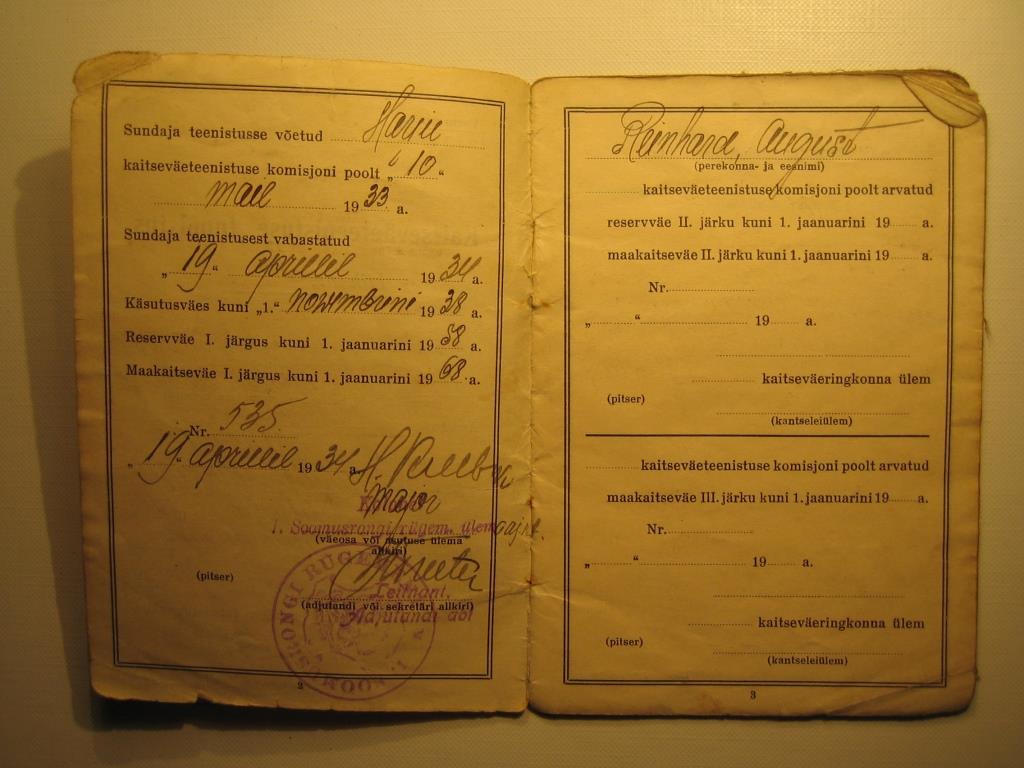 Sundaja teenistusse võetud Harju
kaitseväeteenistuse komisjoni poolt „10“
mail 1933 a.
Sundaja teenistusest vabastatud
„19“ aprillil 1934 a.
Käsutusväes kuni „1.“ novembrini 1938 a.
Reservväe I. järgus kuni 1. jaanuarini 1958 a.
Maakaitseväe I. järgus kuni 1. jaanuarini 1968. a.
Nr. 535.
„19“ aprillil 1934 a.
major
1. Soomusrongi rügem. ülem
(väeosa või asutuse ülema
allkiri)
(pitser)
Leitnant,
(adjutandi või sekretäri allkiri)
Adjutandi abi
SOOMUSRONGI RÜGEMENT
2
Reinhard, August
(perekonna- ja eesnimi)
kaitseväeteenistuse komisjoni poolt arvatud
reservväe II. järku kuni 1. jaanuarini 19 a.
maakaitseväe II. järku kuni 1. jaanuarini 19 a.
Nr.
„ “ 19 a.
kaitseväeringkonna ülem
(pitser)
(kantseleiülem)
kaitseväeteenistuse komisjoni poolt arvatud
maakaitseväe III. järku kuni 1. jaanuarini 19 a.
Nr.
„ “ 19 a.
kaitseväeringkonna ülem
(pitser)
(kantseleiülem)
3